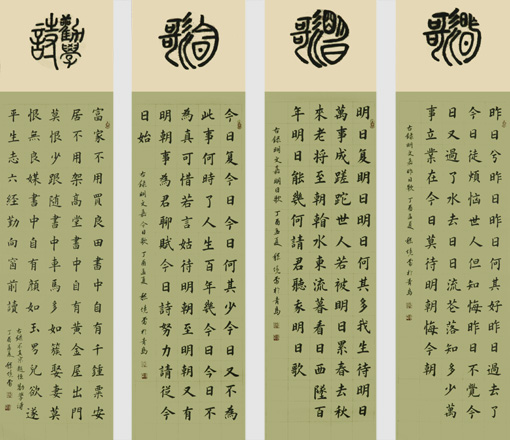 昨日兮昨日昨日何其好昨日過去了
今日徒煩惱世人但知悔昨日不覺今
日又過了水去日日流花落知多少萬
事立業在今日莫待明朝悔今朝
古錄明文嘉昨日歌 丁酉孟夏 書於青島
明日复明日明日何其多我生待明日
萬事成蹉跎世人若被明日累春去秋
來老將至朝翰水東流暮看日西墜百
年明日能幾何請君聽我明日歌
古錄明文嘉明日歌 丁酉孟夏 書於青島
今日复今日今日何其少今日又不為
此事何時了人生百年幾今日今日不
為真可惜若言姑待明朝至明朝又有
明朝事為君聊賦今日詩努力請從今
日始
古錄明文嘉今日歌 丁酉孟夏 書於青島
勸學詩
富家不用買良田書中自有千鍾粟安
居不用架高堂書中自有黃金屋出門
莫恨少跟隨書中車馬多如簇娶妻莫
恨無良媒書中自有顏如玉男兒欲遂
平生志六經勤向窗前讀
古錄宋真宗趙恒勸學詩
丁酉孟夏 書